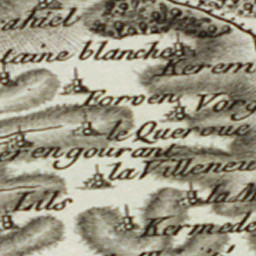 ahiel
taine blanche
Kerem
Forven
Vorg
le Queroue
erengourant
la Villeneu
Lils
la M
Kermede